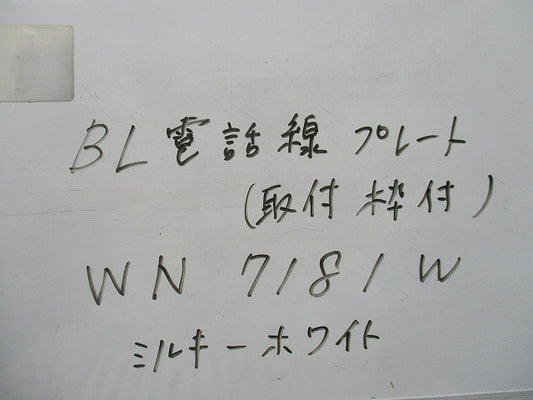 BL電話線プレート
(取付枠付)
WN 7181W
ミルキーホワイト